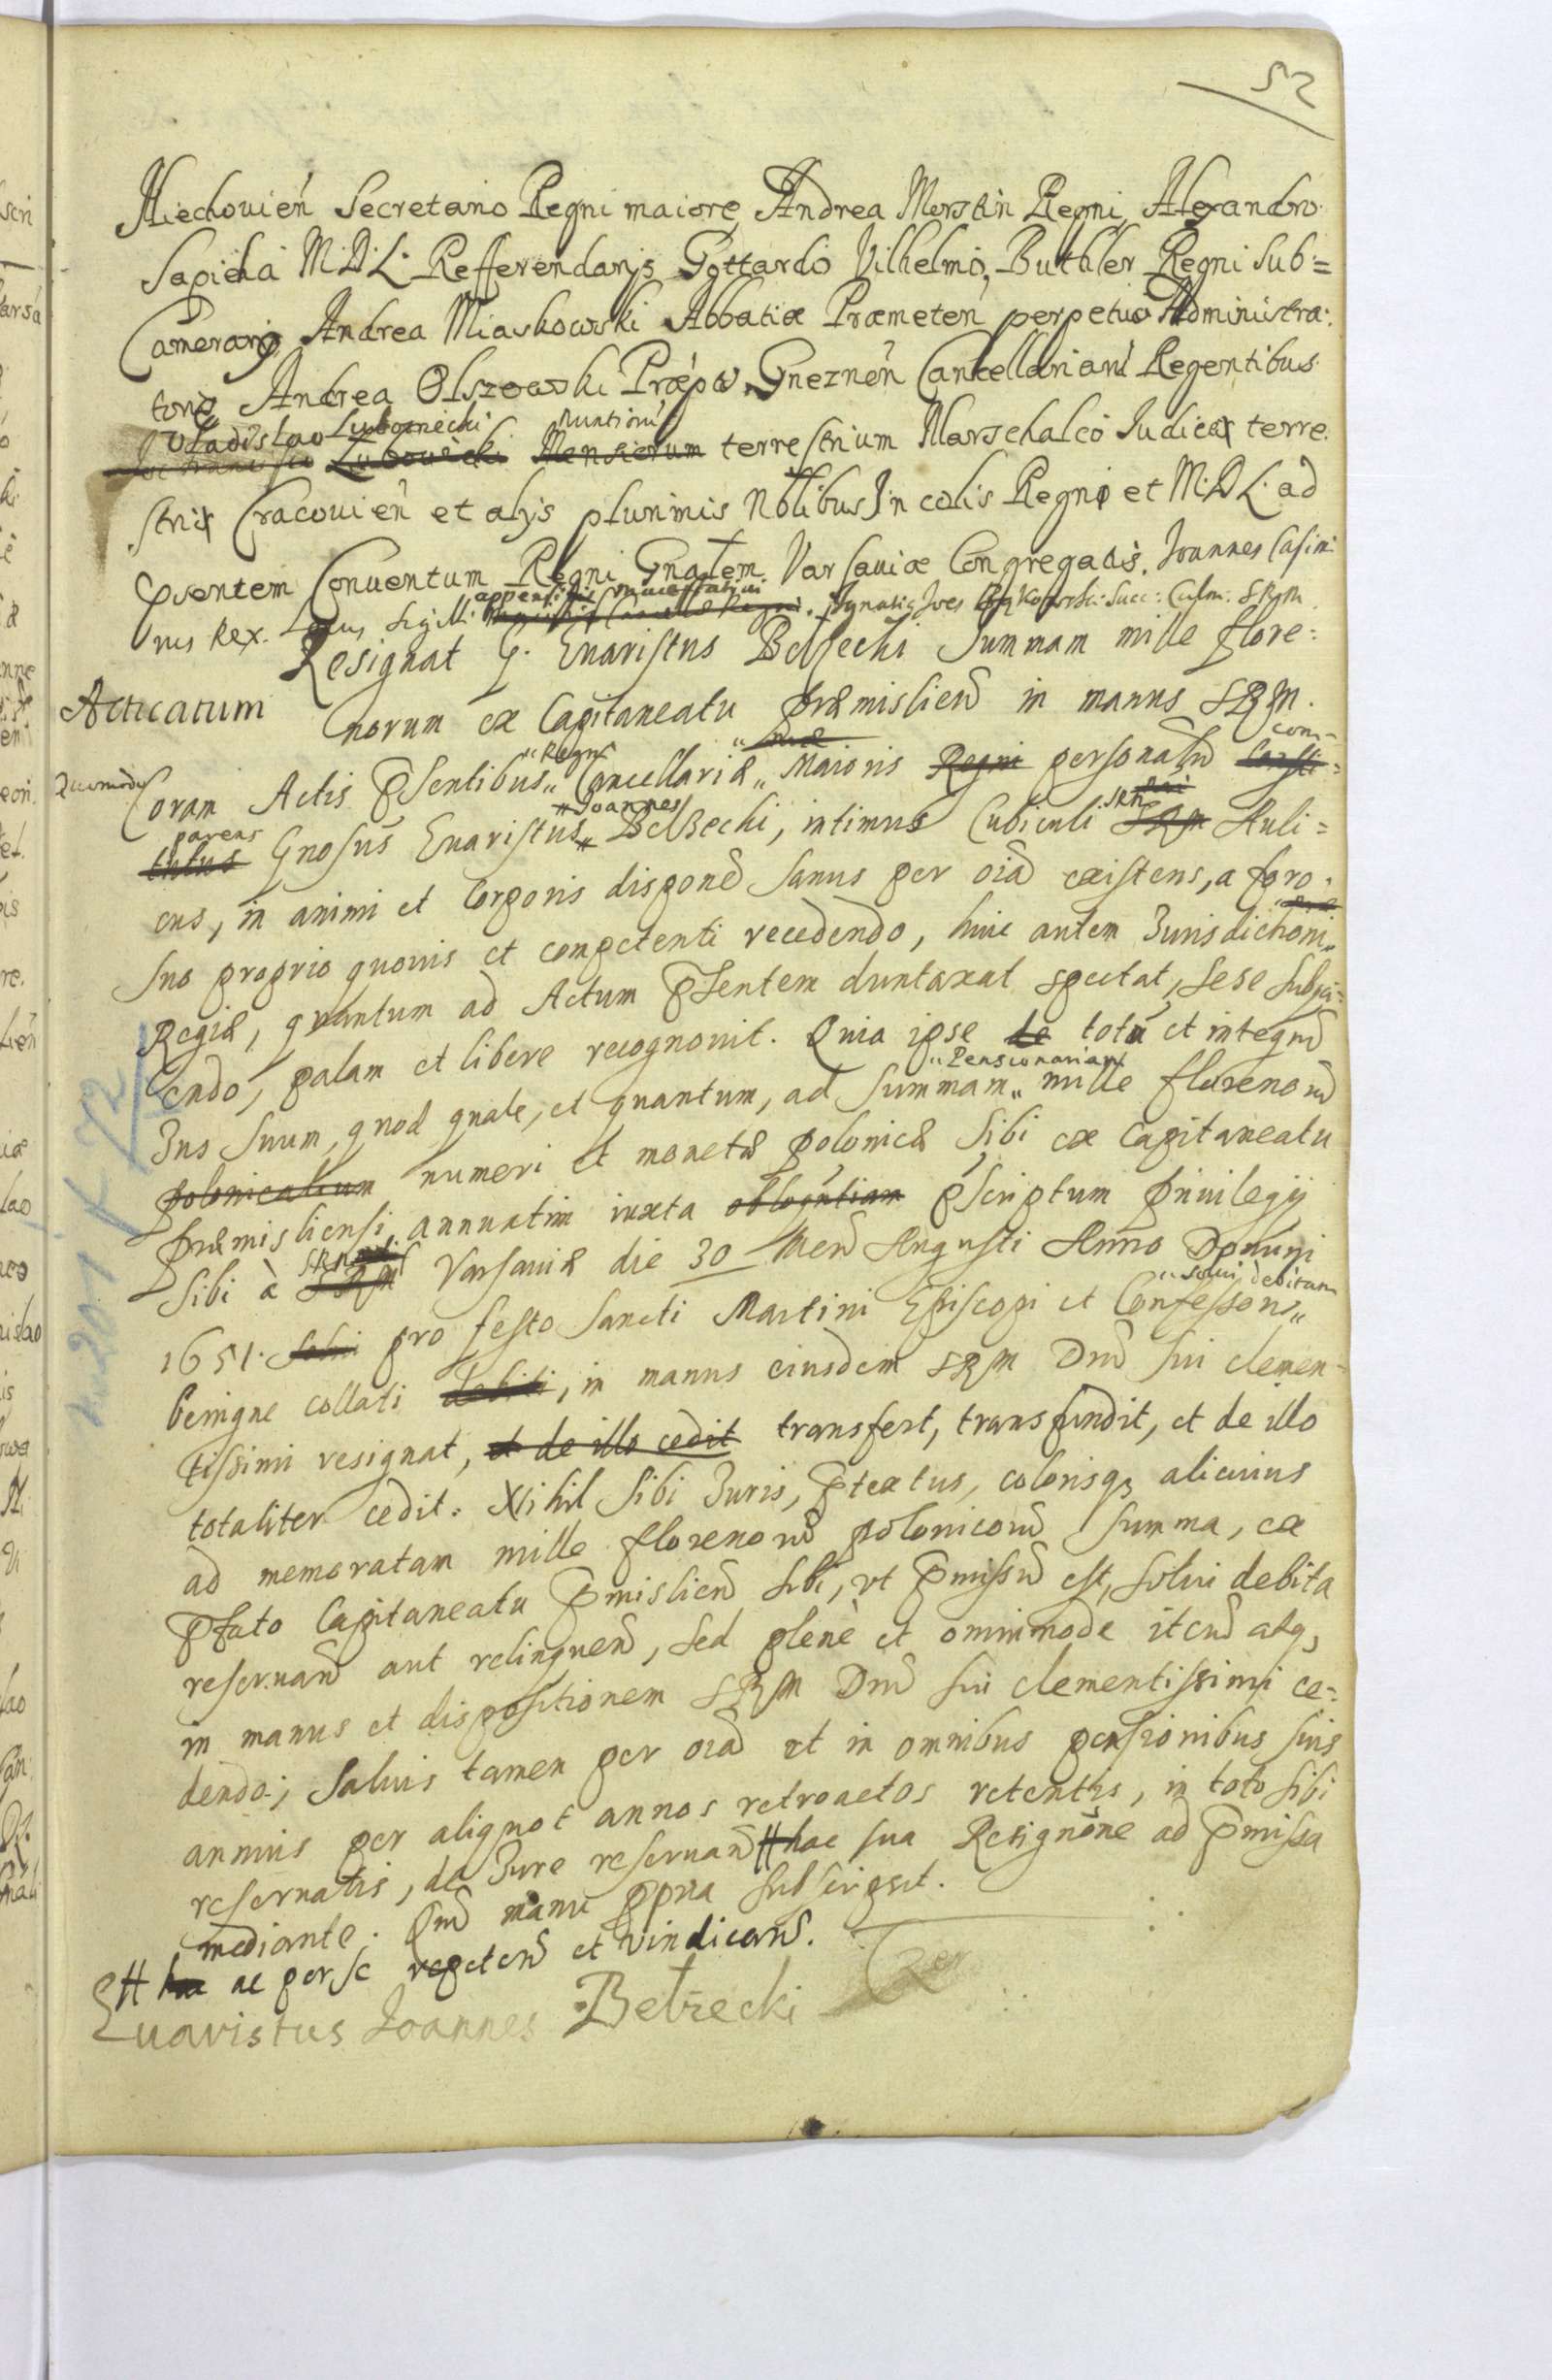 52
Miechouień Secretario Regni maiore Andrea Morstin Regni, Alexandro
Sapieha M.D.L. Refferendarijs Gottardo Vilhelmo, Buthler Regni Sub=
Camerario, Andrea Miaskowski Abbatiæ Præmeteń perpetuo Administra:
tore Andrea Olszowski Præpo. Gnezneń Cancellariarū Regentibus
Vladislao Lubomecki nuntiorū
Lubowiecki terrestrium Marschalco Judice terre
stri Cracouień et alijs plurimis Nobilibus Incolis Regni et M.D.L. ad
psentem Conuentum Regni Gnalem Varsauiæ Congregatis. Joannes Casimi
appensi
rus Rex. Locus Sigilli SRM
Resignat G. Euaristus Belzecki Summam mille flore=
Acticatum norum ex Capitaneatu præmislień in manus SRM.
Regni
com=
Coram Actis psentibus Cancellariæ Maioris Regni personalr
Joannes
parens Gnosus Euaristus Belzecki, intimus Cubiculi SRM Auli=
cus, in animi et corporis disponē sanus per oia existens, a foro
suo proprio quouis et competenti recedendo, huic autem Jurisdictioni
Regiæ, quantum ad Actum psentem duntaxat spectat, sese subjici=
endo, palam et libere recognouit. Quia ipse de totū et integrū
Pensionariam
Jus suum, quod quale, et quantum, ad summam mille florenorū
polonicalium numeri et monetæ polonicæ sibi ex Capitaneatu
præmisliensi annuatim iuxta pscriptum priuilegij
sibi à SRM Varsauiæ die 30 Mens Augusti Anno Domini
solui debitam
1651. solui pro festo Sancti Martini Episcopi et Confessoris
benigne collati debiti, in manus eiusdem SRM Dnī sui clemen=
tissimi resignat, et de illo cedit transfert, transfundit, et de illo
totaliter cedit. Nihil sibi Juris, ptextus, colorisq; alicuius
ad memoratam mille florenorū polonicorū summa, ex
pfato Capitaneatu Pmislień sibi, vt pmissū est, solui debita
reseruań aut relinqueń, sed plenè et omnimode itenō atq;
in manus et dispositionem SRM Dnī sui clementissimi ce=
dendo; saluis tamen per oia et in omnibus pensionibus suis
annuis per aliquot annos retroactos retentis, in toto sibi
reseruatis, de Jure reseruań # hac sua Resignōne ad pmissa
mediante. Qm̄ manu ppria subscripsit.
# ac per se repeteń et vindicań.
Euaristus Joannes Bełzecki